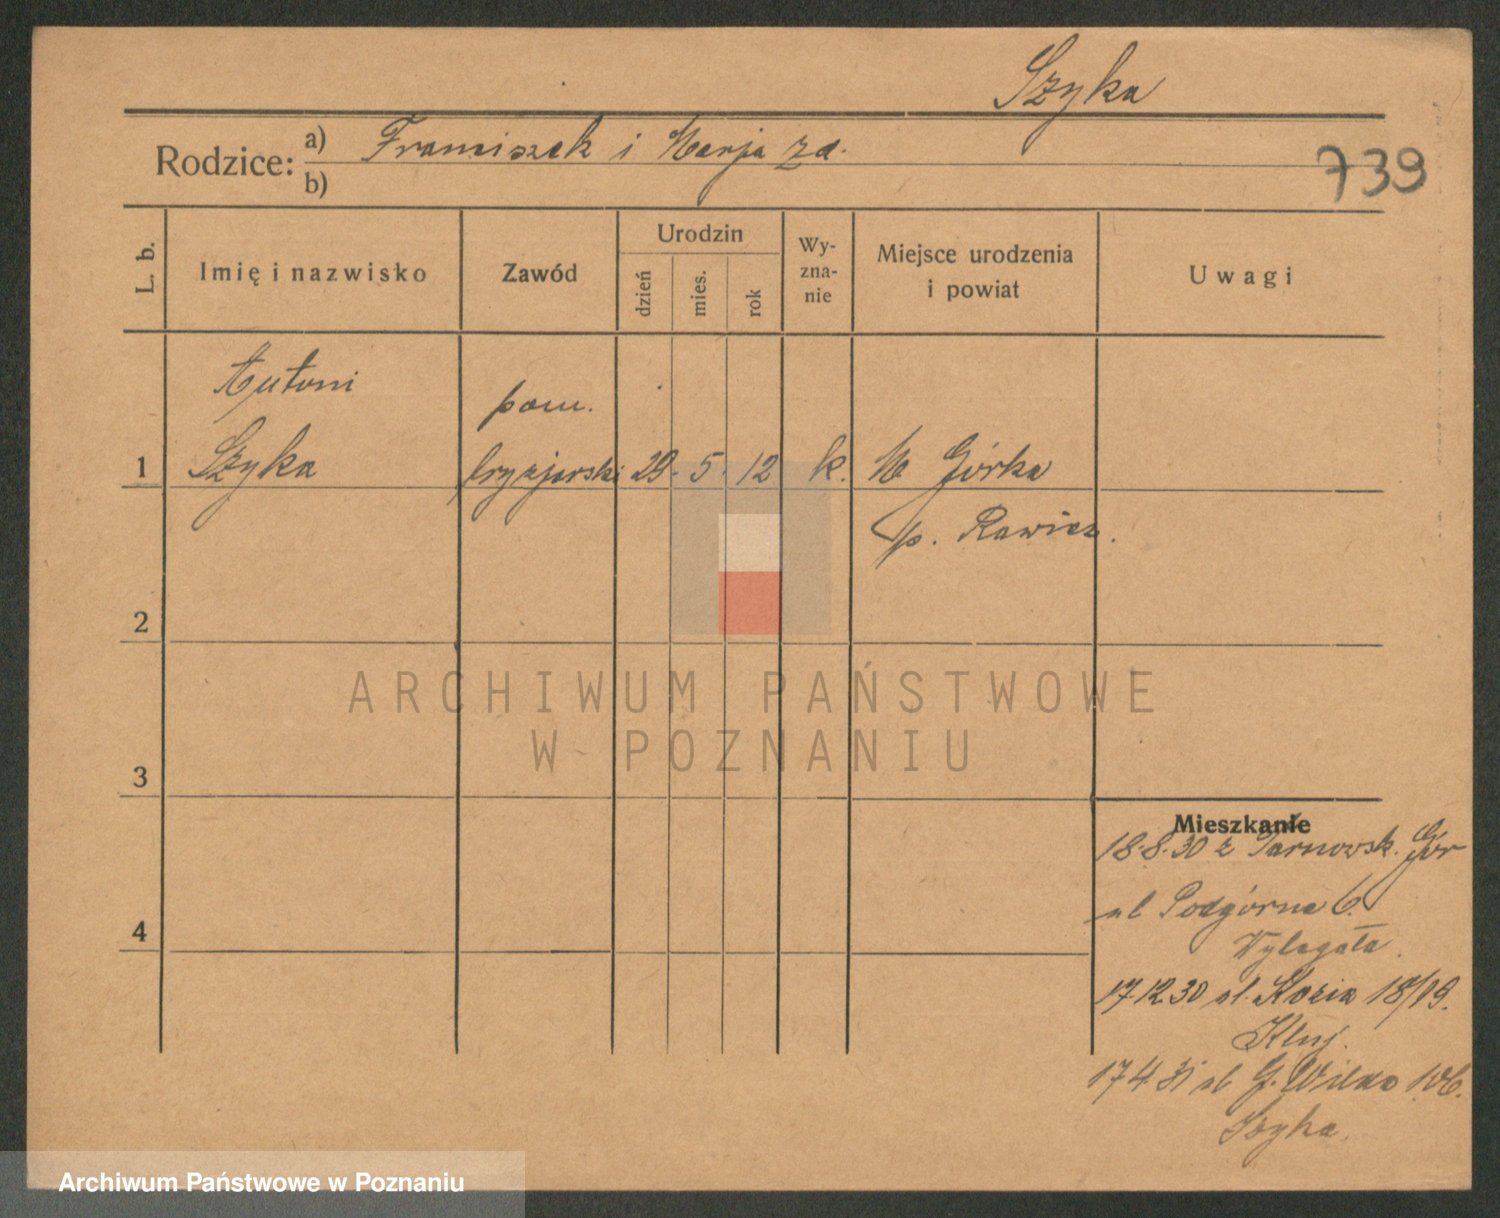 Szyka
Rodzice: a) Franciszek i Marja zd.
b)
739
L. b.
Imię i nazwisko
Zawód
Urodzin
dzień
mies.
rok
Wy-
zna-
nie
Miejsce urodzenia
i powiat
Uwagi
Antoni
pom.
1 Szyka fryzjerski 29. 5. 12 k. M Górka
p. Rawicz.
2
ARCHIWUM PAŃSTWOWE
W POZNANIU
3
Mieszkanie
18.8.30 z Tarnowsk. Gór
ul Podgórna 6.
4
17.12.30 ul. Kozia 18/19.
Kluj.
17.4.31 ul G. Wilda 106.
Szyka.
Archiwum Państwowe w Poznaniu